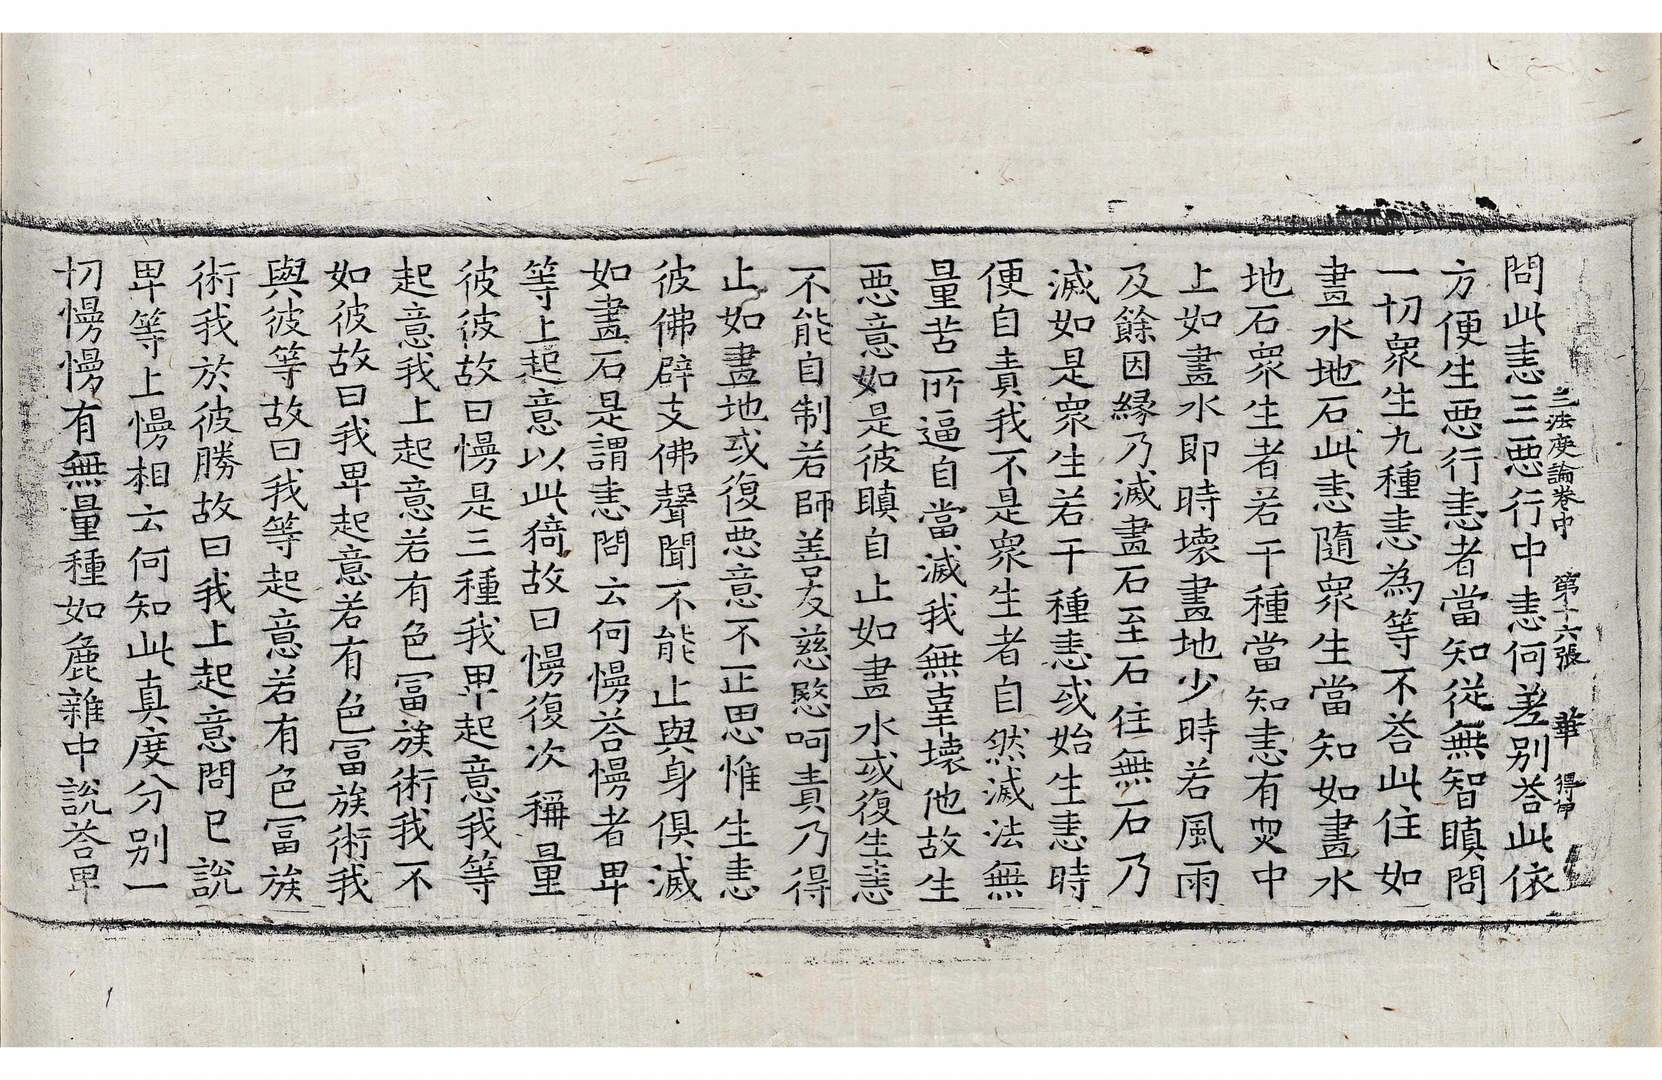 三法度論卷中 第十六張 華 得
問此恚三惡行中恚何差別荅此依
方便生惡行恚者當知從無智瞋問
一切衆生九種恚為等不荅此住如
畫水地石此恚隨衆生當知如畫水
地石衆生者若干種當知恚有四中
上如畫水即時壞畫地少時若風雨
及餘因緣乃滅畫石至石住無石乃
滅如是衆生若干種恚或始生恚時
便自責我不是衆生者自然滅法無
量苦所逼自當滅我無辜壞他故生
惡意如是彼瞋自止如畫水或復生恚
不能自制若師善友慈愍呵責乃得
止如畫地或復惡意不正思惟生恚
彼佛辟支佛聲聞不能止與身俱滅
如畫石是謂恚問云何慢荅慢者卑
等上起意以此猗故曰慢復次稱量
彼彼故曰慢是三種我卑起意我等
起意我上起意若有色冨族術我不
如彼故曰我卑起意若有色冨族術我
與彼等故曰我等起意若有色冨族
術我於彼勝故曰我上起意問已說
卑等上慢相云何知此真度分別一
切慢慢有無量種如麁雜中說荅卑